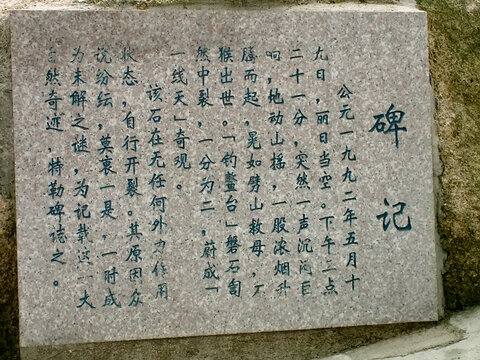 碑记
公元一九九二年五月十
九日，丽日当空。下午二点
二十一分，突然一声沉闷巨
响，地动山摇，一股浓烟升
腾而起，晃如劈山救母，石
猴出世。「钓鳌台」磐石訇
然中裂，一分为二，蔚成「
一线天」奇观。
该石在无任何外力作用
状态，自行开裂。其原因众
说纷纭，莫衷一是，一时成
为未解之谜，为记载这一大
自然奇迹，特勒碑誌之。